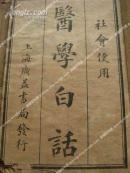 社會使用
醫學白話
上海廣益書局發行